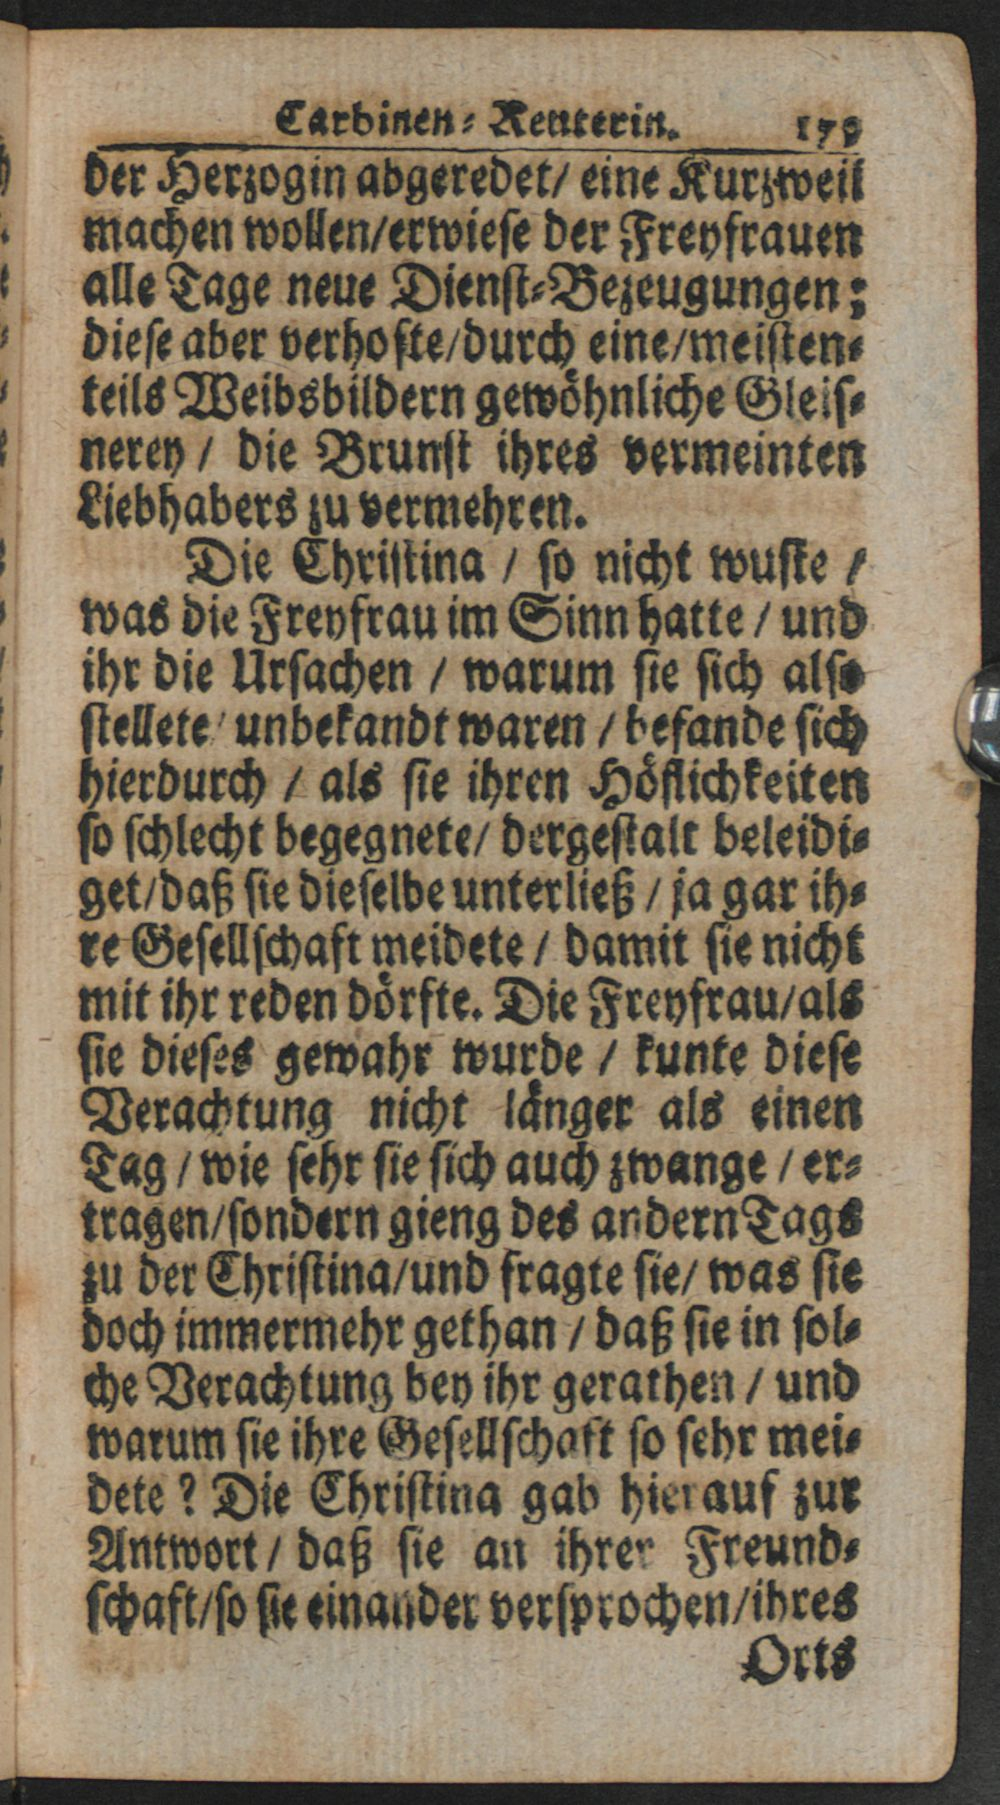 Carbinen-Reuterin. 179
der Herzogin abgeredet/ eine Kurzweil
machen wollen/erwiese der Freyfrauen
alle Tage neue Dienst-Bezeugungen;
diese aber verhofte/durch eine/meisten-
teils Weibsbildern gewöhnliche Gleis-
nerey / die Brunst ihres vermeinten
Liebhabers zu vermehren.
Die Christina / so nicht wuste /
was die Freyfrau im Sinn hatte / und
ihr die Ursachen / warum sie sich also
stellete/ unbekandt waren / befande sich
hierdurch / als sie ihren Höflichkeiten
so schlecht begegnete/ dergestalt beleidi-
get/daß sie dieselbe unterließ / ja gar ih-
re Gesellschaft meidete / damit sie nicht
mit ihr reden dörfte. Die Freyfrau/als
sie dieses gewahr wurde / kunte diese
Verachtung nicht länger als einen
Tag / wie sehr sie sich auch zwange / er-
tragen/sondern gieng des andern Tags
zu der Christina/und fragte sie/ was sie
doch immermehr gethan / daß sie in sol-
che Verachtung bey ihr gerathen / und
warum sie ihre Gesellschaft so sehr mei-
dete ? Die Christina gab hierauf zur
Antwort / daß sie an ihrer Freund-
schaft/so sie einander versprochen/ihres
Orts